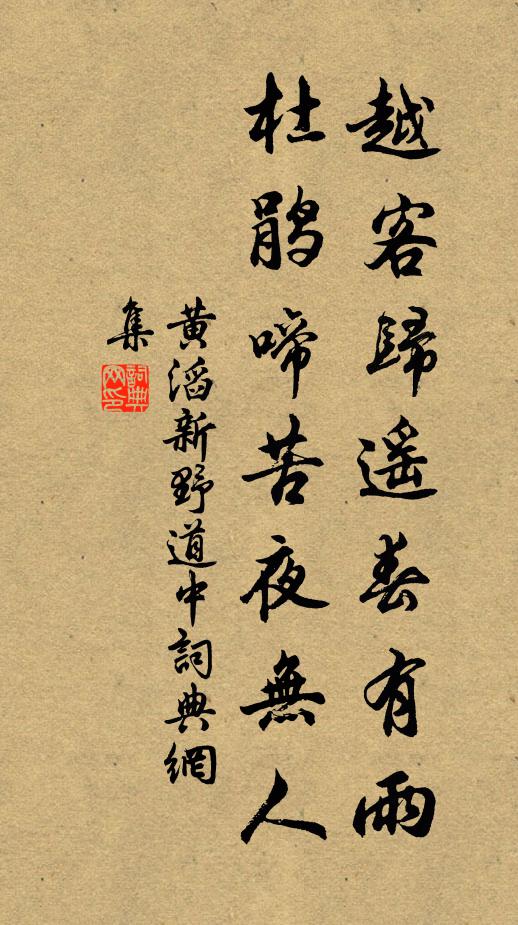 越客歸遥春有雨
杜鹃啼苦夜無人
黄滔新野道中詞典網
集
詞典網印